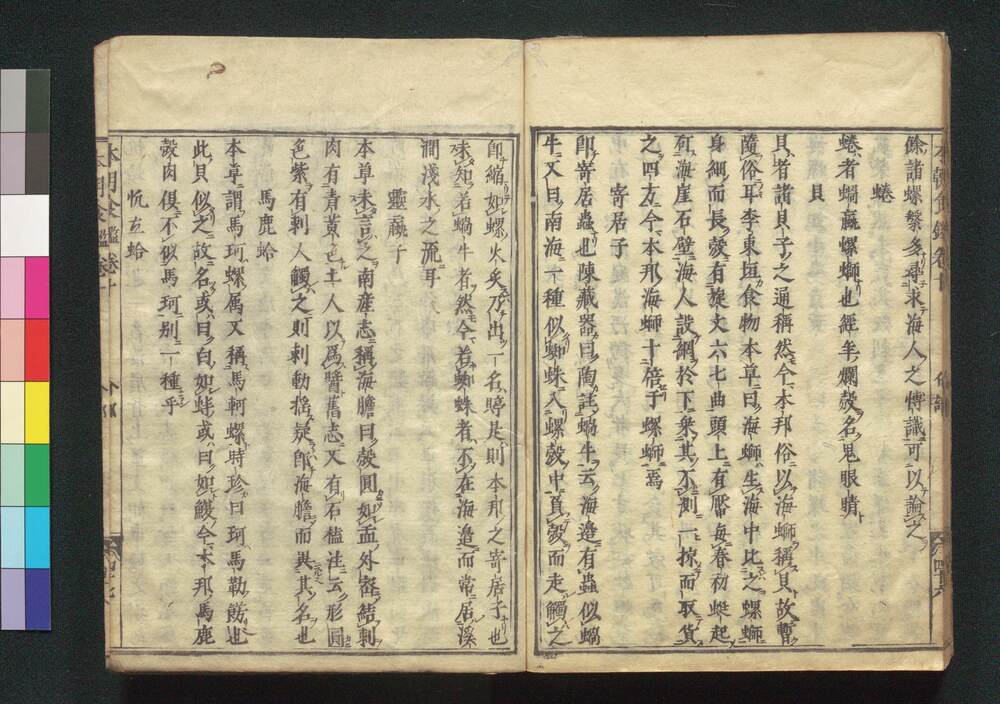 餘諸螺繁多尋求海人之博識可以論之
蜷
蜷者蝸蠃螺螄也經年爛殼名鬼眼睛
貝
貝者諸貝子之通稱然今本邦俗以海螄稱貝故暫
隨俗耳李東垣食物本草曰海螄生海中比之螺螄
身細而長殼有旋文六七曲頭上有厴每春初蜒起
矴海崖石壁海人設網於下乘其不測一掠而取貨
之四方今本邦海螄十倍于螺螄焉
寄居子
卽寄居蟲也陳藏器曰陶註蝸牛云海邊有蟲似蝸
牛又曰南海一種似蜘蛛入螺殼中負殼而走觸之
卽縮如螺火炙乃出一名是則本邦之寄居子也
未知若蝸牛者然今若蜘蛛者不在海邊而常居溪
澗淺水之流耳
靈蠃子
本草未言之南產志稱海膽曰殼圓如盂外密結刺
肉有膏黃色土人以爲醬舊志又有石榼注云形圓
色紫有刺人觸之則刺動搖疑卽海膽而異其名也
馬鹿蛤
本草謂馬珂螺屬又稱馬軻螺時珍曰珂馬勒飾也
此貝似之故名或曰白如蚌或曰如鰒今本邦馬鹿
殼肉俱不似馬珂別一種乎
蛤
本朝食鑑卷十
四十六
四十七